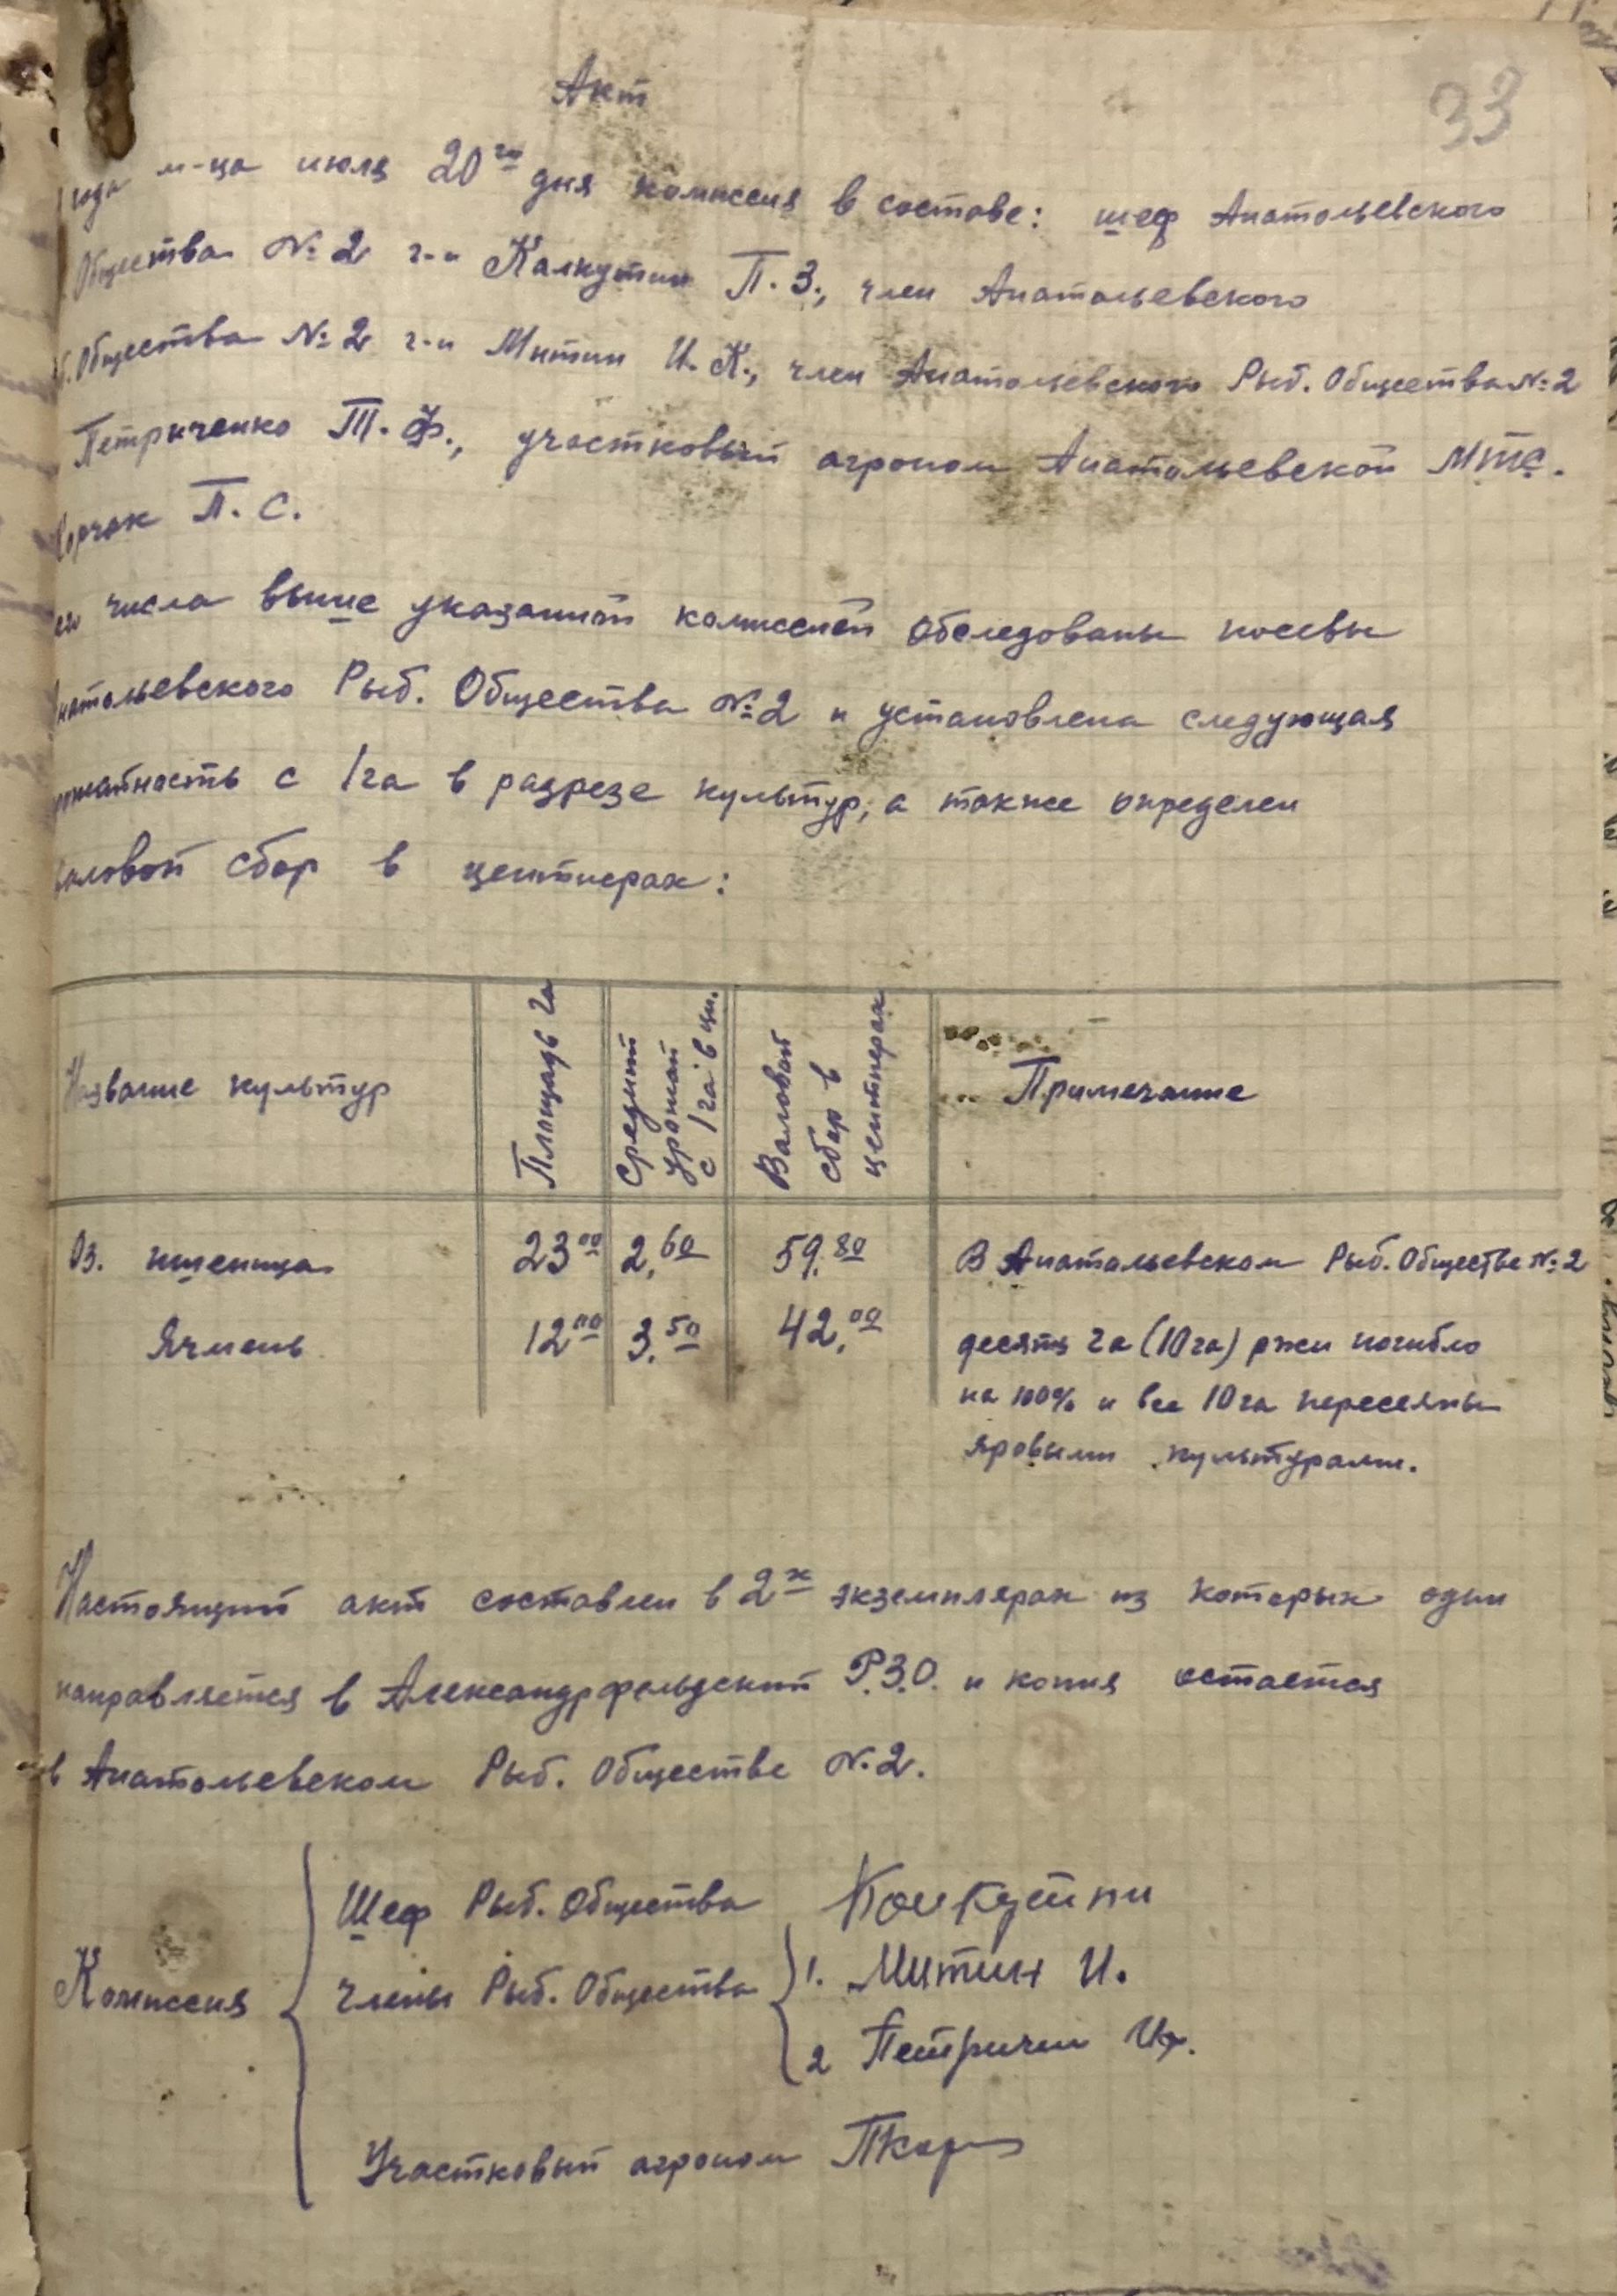 Акт
33
года м-ца июля 20го дня комиссия в составе: шеф Анатольевского
Общества №2 г-н Калкутин П.З., член Анатольевского
Общества №2 г-н Митин И.К., член Анатольевского Рыб. Общества №2
Петриченко Т.Ф., участковый агроном Анатольевской МТС.
П.С.
числа выше указанной комиссией обследованы посевы
Анатольевского Рыб. Общества №2 и установлена следующая
урожайность с 1га в разрезе культур, а также определен
валовой сбор в центнерах:
Название культур
Площадь га
Средний урожай с 1га в цн.
Валовой сбор в центнерах
Примечание
Оз. пшеница 23.00 2,60 59.80 В Анатольевском Рыб. Обществе №2
Ячмень 12.00 3.50 42.00 десять га (10га) ржи погибло
на 100% и все 10га пересеяны
яровыми культурами.
Настоящий акт составлен в 2х экземплярах из которых один
направляется в Александрфельдский Р.З.О. и копия остается
в Анатольевском Рыб. Обществе №2.
Комиссия
Шеф Рыб. Общества
члены Рыб. Общества 1. Митин И.
2
Участковый агроном